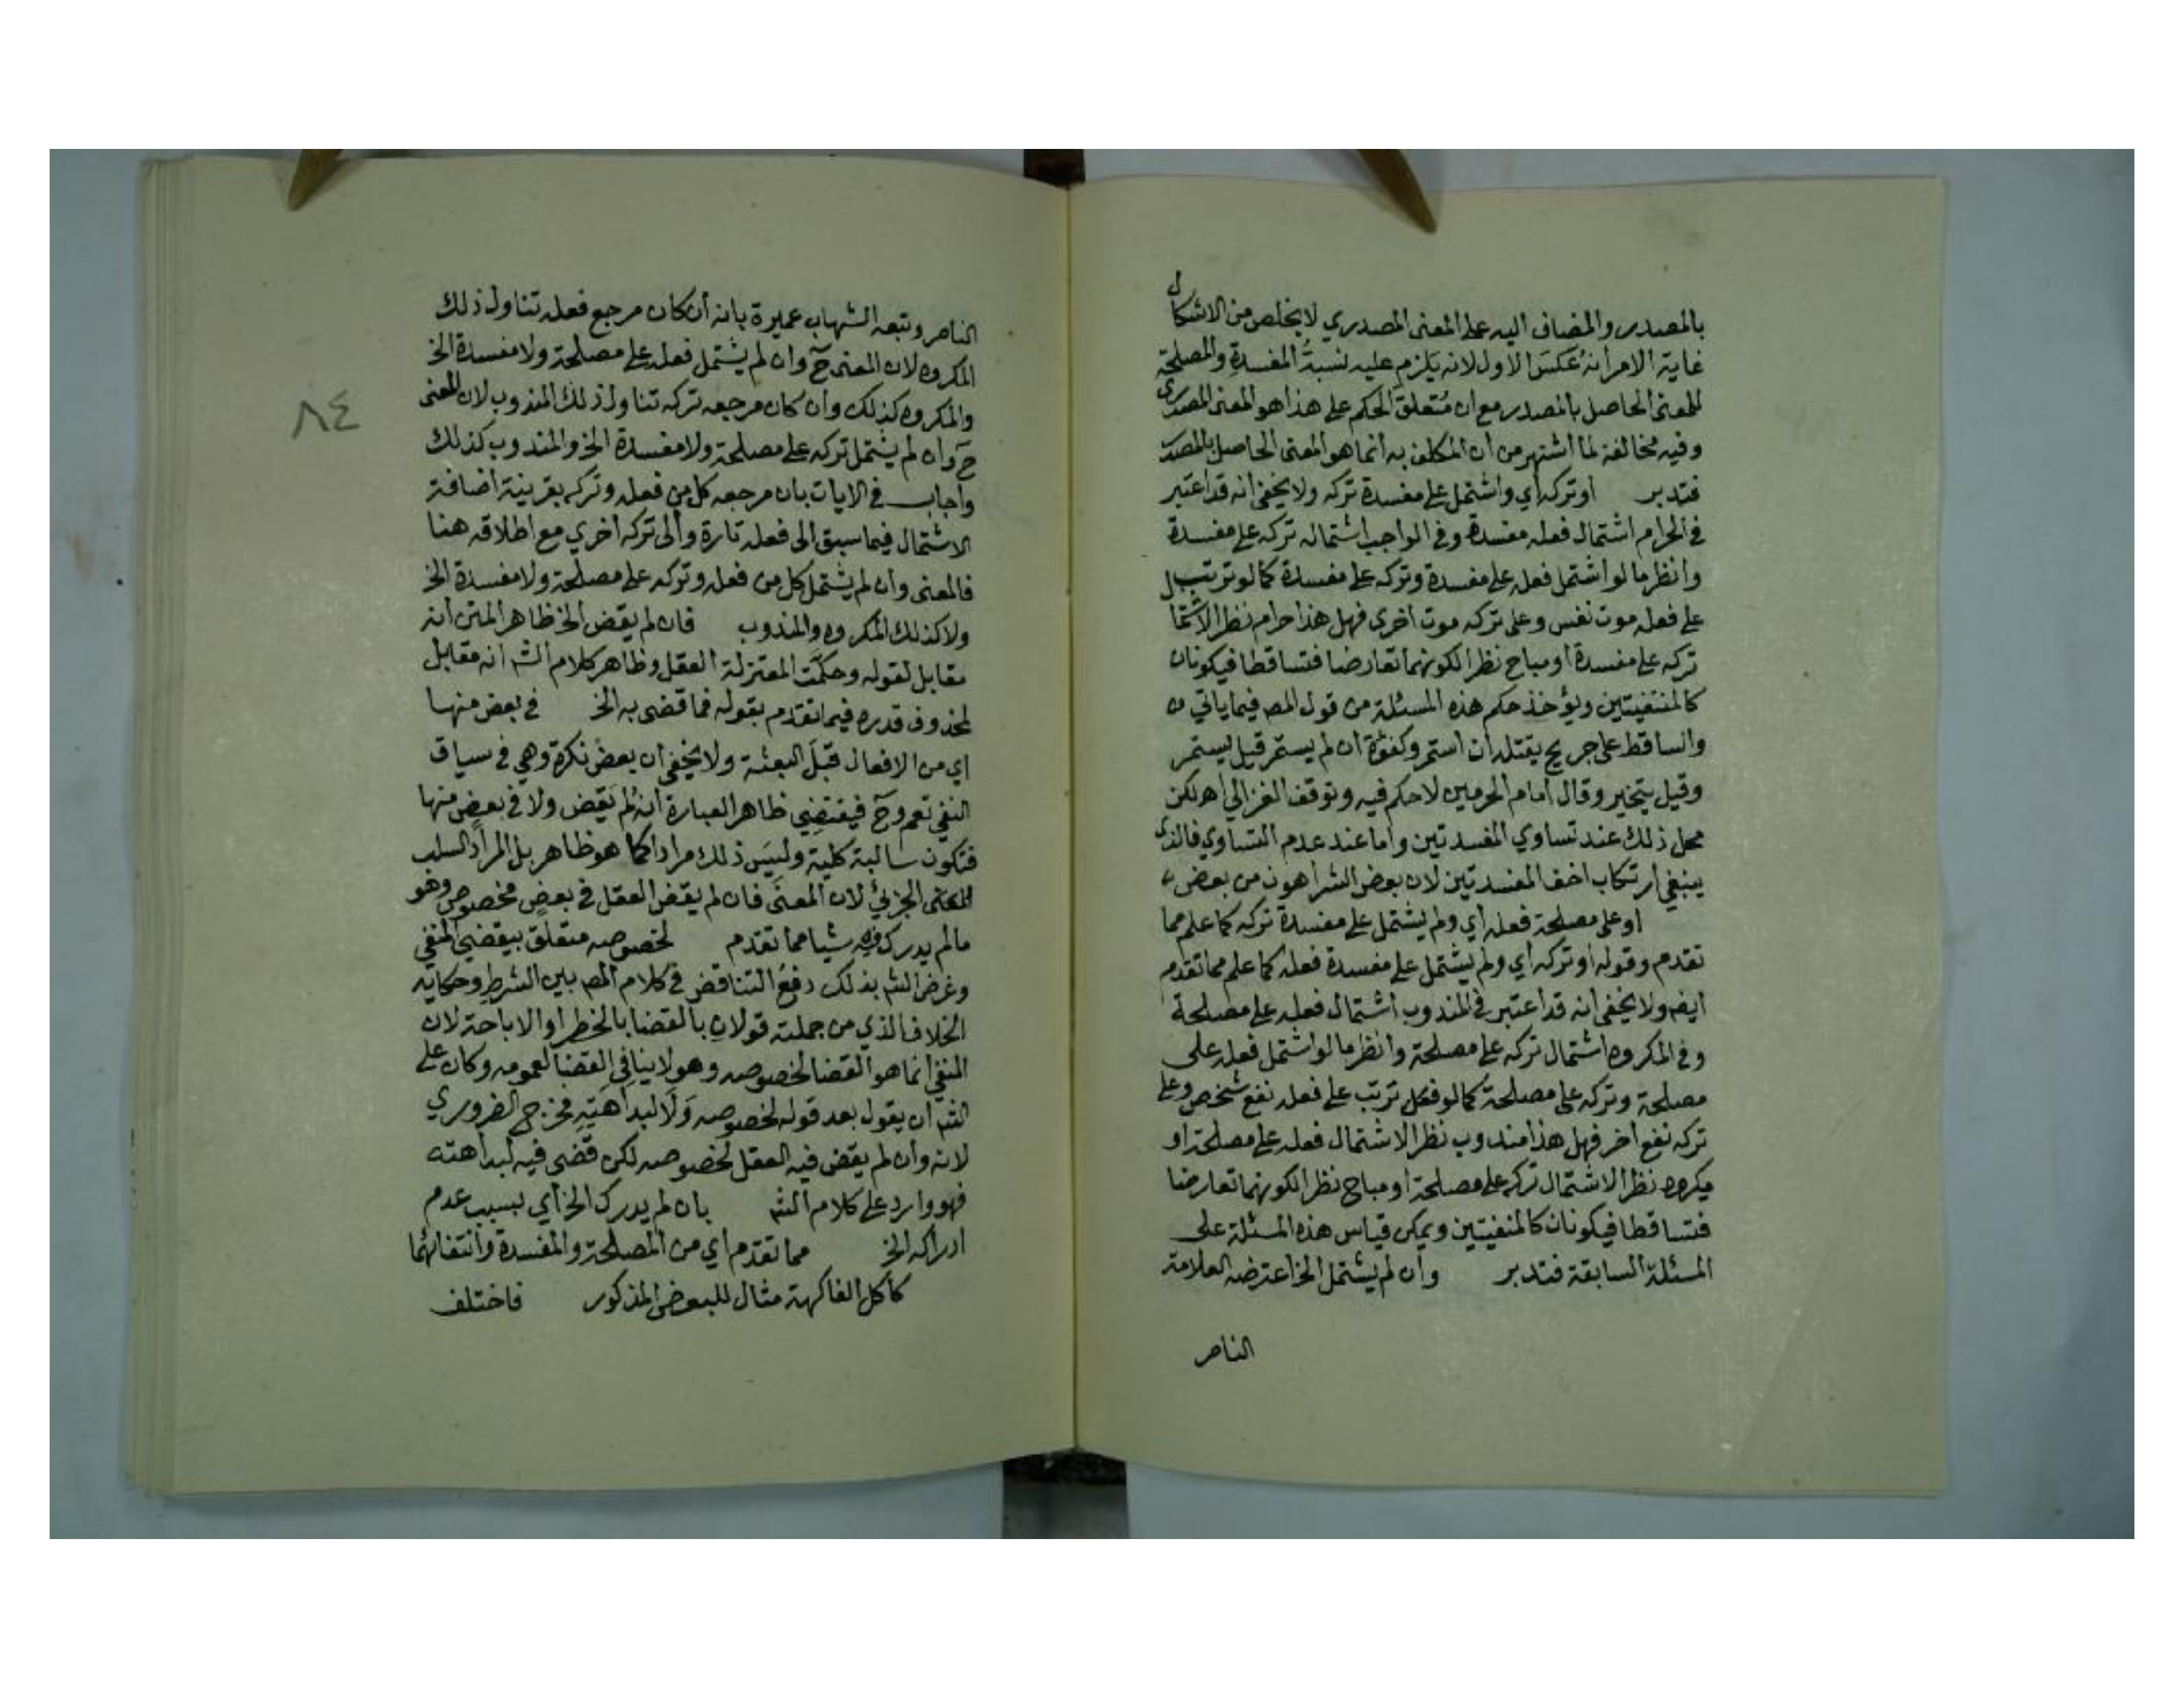 بالمصدر والمضاف اليه على المعنى المصدري لا يخلص من الاشكال
غاية الامر انه عكس الاول لانه يلزم عليه نسبة المفسدة والمصلحة
للمعنى الحاصل بالمصدر مع ان متعلق الحكم على هذا هو المعنى المصدري
وفيه مخالفة لما اشتهر من ان المكلف به انما هو المعنى الحاصل بالمصدر
فتدبر او تركه اي واشتمل على مفسدة تركه ولا يخفى انه قد اعتبر
في الحرام اشتمال فعله مفسدة وفي الواجب اشتماله تركه على مفسدة
وانظر ما لو اشتمل فعله على مفسدة وتركه على مفسدة كما لو ترتب
على فعله موت نفس وعلى تركه موت اخرى فهل هذا حرام نظرا لاشتمال
تركه على مفسدة او مباح نظرا لكونهما تعارضا فتساقطا فيكونان
كالمنتفيتين ويؤخذ حكم هذه المسئلة من قول المص فيما ياتي
والساقط على جريح يقتله ان استمر وكفؤه ان لم يستمر قيل يستمر
وقيل يتخير وقال امام الحرمين لا حكم فيه وتوقف الغزالي اه لكن
محل ذلك عند تساوي المفسدتين واما عند عدم التساوي فالذي
ينبغي ارتكاب اخف المفسدتين لان بعض الشر اهون من بعض
او على مصلحة فعله اي ولم يشتمل على مفسدة تركه كما علم مما
تقدم وقوله او تركه اي ولم يشتمل على مفسدة فعله كما علم مما تقدم
ايضا ولا يخفى انه قد اعتبر في المندوب اشتمال فعله على مصلحة
وفي المكروه اشتمال تركه على مصلحة وانظر ما لو اشتمل فعله على
مصلحة وتركه على مصلحة كما لو ترتب على فعله نفع شخص وعلى
تركه نفع اخر فهل هذا مندوب نظرا لاشتمال فعله على مصلحة او
مكروه نظرا لاشتمال تركه على مصلحة او مباح نظرا لكونهما تعارضا
فتساقطا فيكونان كالمنفيتين ويمكن قياس هذه المسئلة على
المسئلة السابقة فتدبر وان لم يشتمل الخ اعترضه العلامة
الناصر
الناصر وتبعه الشهاب عميرة بانه ان كان مرجع فعله تناول ذلك
المكروه لان المعنى ح وان لم يشتمل فعله على مصلحة ولا مفسدة الخ
والمكروه كذلك وان كان مرجعه تركه تناول ذلك المندوب لان المعنى
ح وان لم يشتمل تركه على مصلحة ولا مفسدة الخ والمندوب كذلك
واجاب في الايات بان مرجعه كل من فعله وتركه بقرينة اضافة
الاشتمال فيما سبق الى فعله تارة والى تركه اخري مع اطلاقه هنا
فالمعنى وان لم يشتمل كل من فعله وتركه على مصلحة ولا مفسدة الخ
ولا كذلك المكروه والمندوب فان لم يقض الخ ظاهر المتن انه
مقابل لقوله وحكمت المعتزلة العقل وظاهر كلام الشه انه مقابل
لمحذوف قدره فيما تقدم بقوله فما قضى به الخ في بعض منها
اي من الافعال قبل البعثة ولا يخفى ان بعض نكرة وهي في سياق
النفي تعم وح فيقتضي ظاهر العبارة انه لم يقض ولا في بعض منها
فتكون سالبة كلية وليس ذلك مرادا كما هو ظاهر بل المراد السلب
الجزئي لان المعنى فان لم يقض العقل في بعض مخصوص وهو
مالم يدرك فيه شيا مما تقدم لخصوصه متعلق بيقضي المنفي
وغرض الشه بذلك دفع التناقض في كلام المص بين الشرط وحكاية
الخلاف الذي من جملته قولان بالقضا بالخطر او الاباحة لان
المنفي انما هو القضا لخصوصه وهو لا ينافي القضا لعمومه وكان على
الشه ان يقول بعد قوله لخصوصه ولا لبداهته فخرج الضروري
لانه وان لم يقض فيه العقل لخصوصه لكن قضى فيه لبداهته
فهو وارد على كلام الشه بان لم يدرك الخ اي بسبب عدم
ادراكه الخ مما تقدم اي من المصلحة والمفسدة وانتفائهما
كاكل الفاكهة مثال للبعض المذكور فاختلف
٨٤